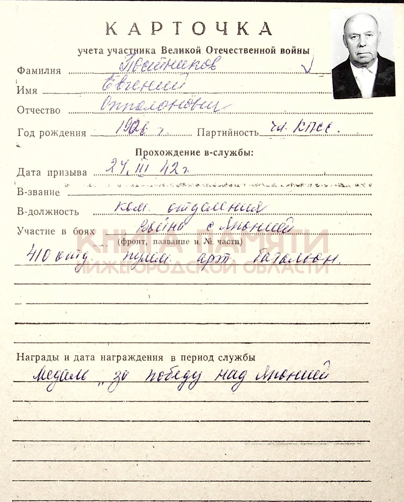 КАРТОЧКА
учета участника Великой Отечественной войны
Фамилия Постников
Имя Евгений
Отчество
Год рождения 1926 г. Партийность чл. КПСС.
Прохождение в-службы:
Дата призыва 24. III 42 г.
В-звание
В-должность ком. отделения
Участие в боях война с Японией
(фронт, название и № части)
КНИГА ПАМЯТИ
410 отд. пулем. арт. батальон.
НИЖЕГОРОДСКОЙ ОБЛАСТИ
Награды и дата награждения в период службы
Медаль „за победу над Японией